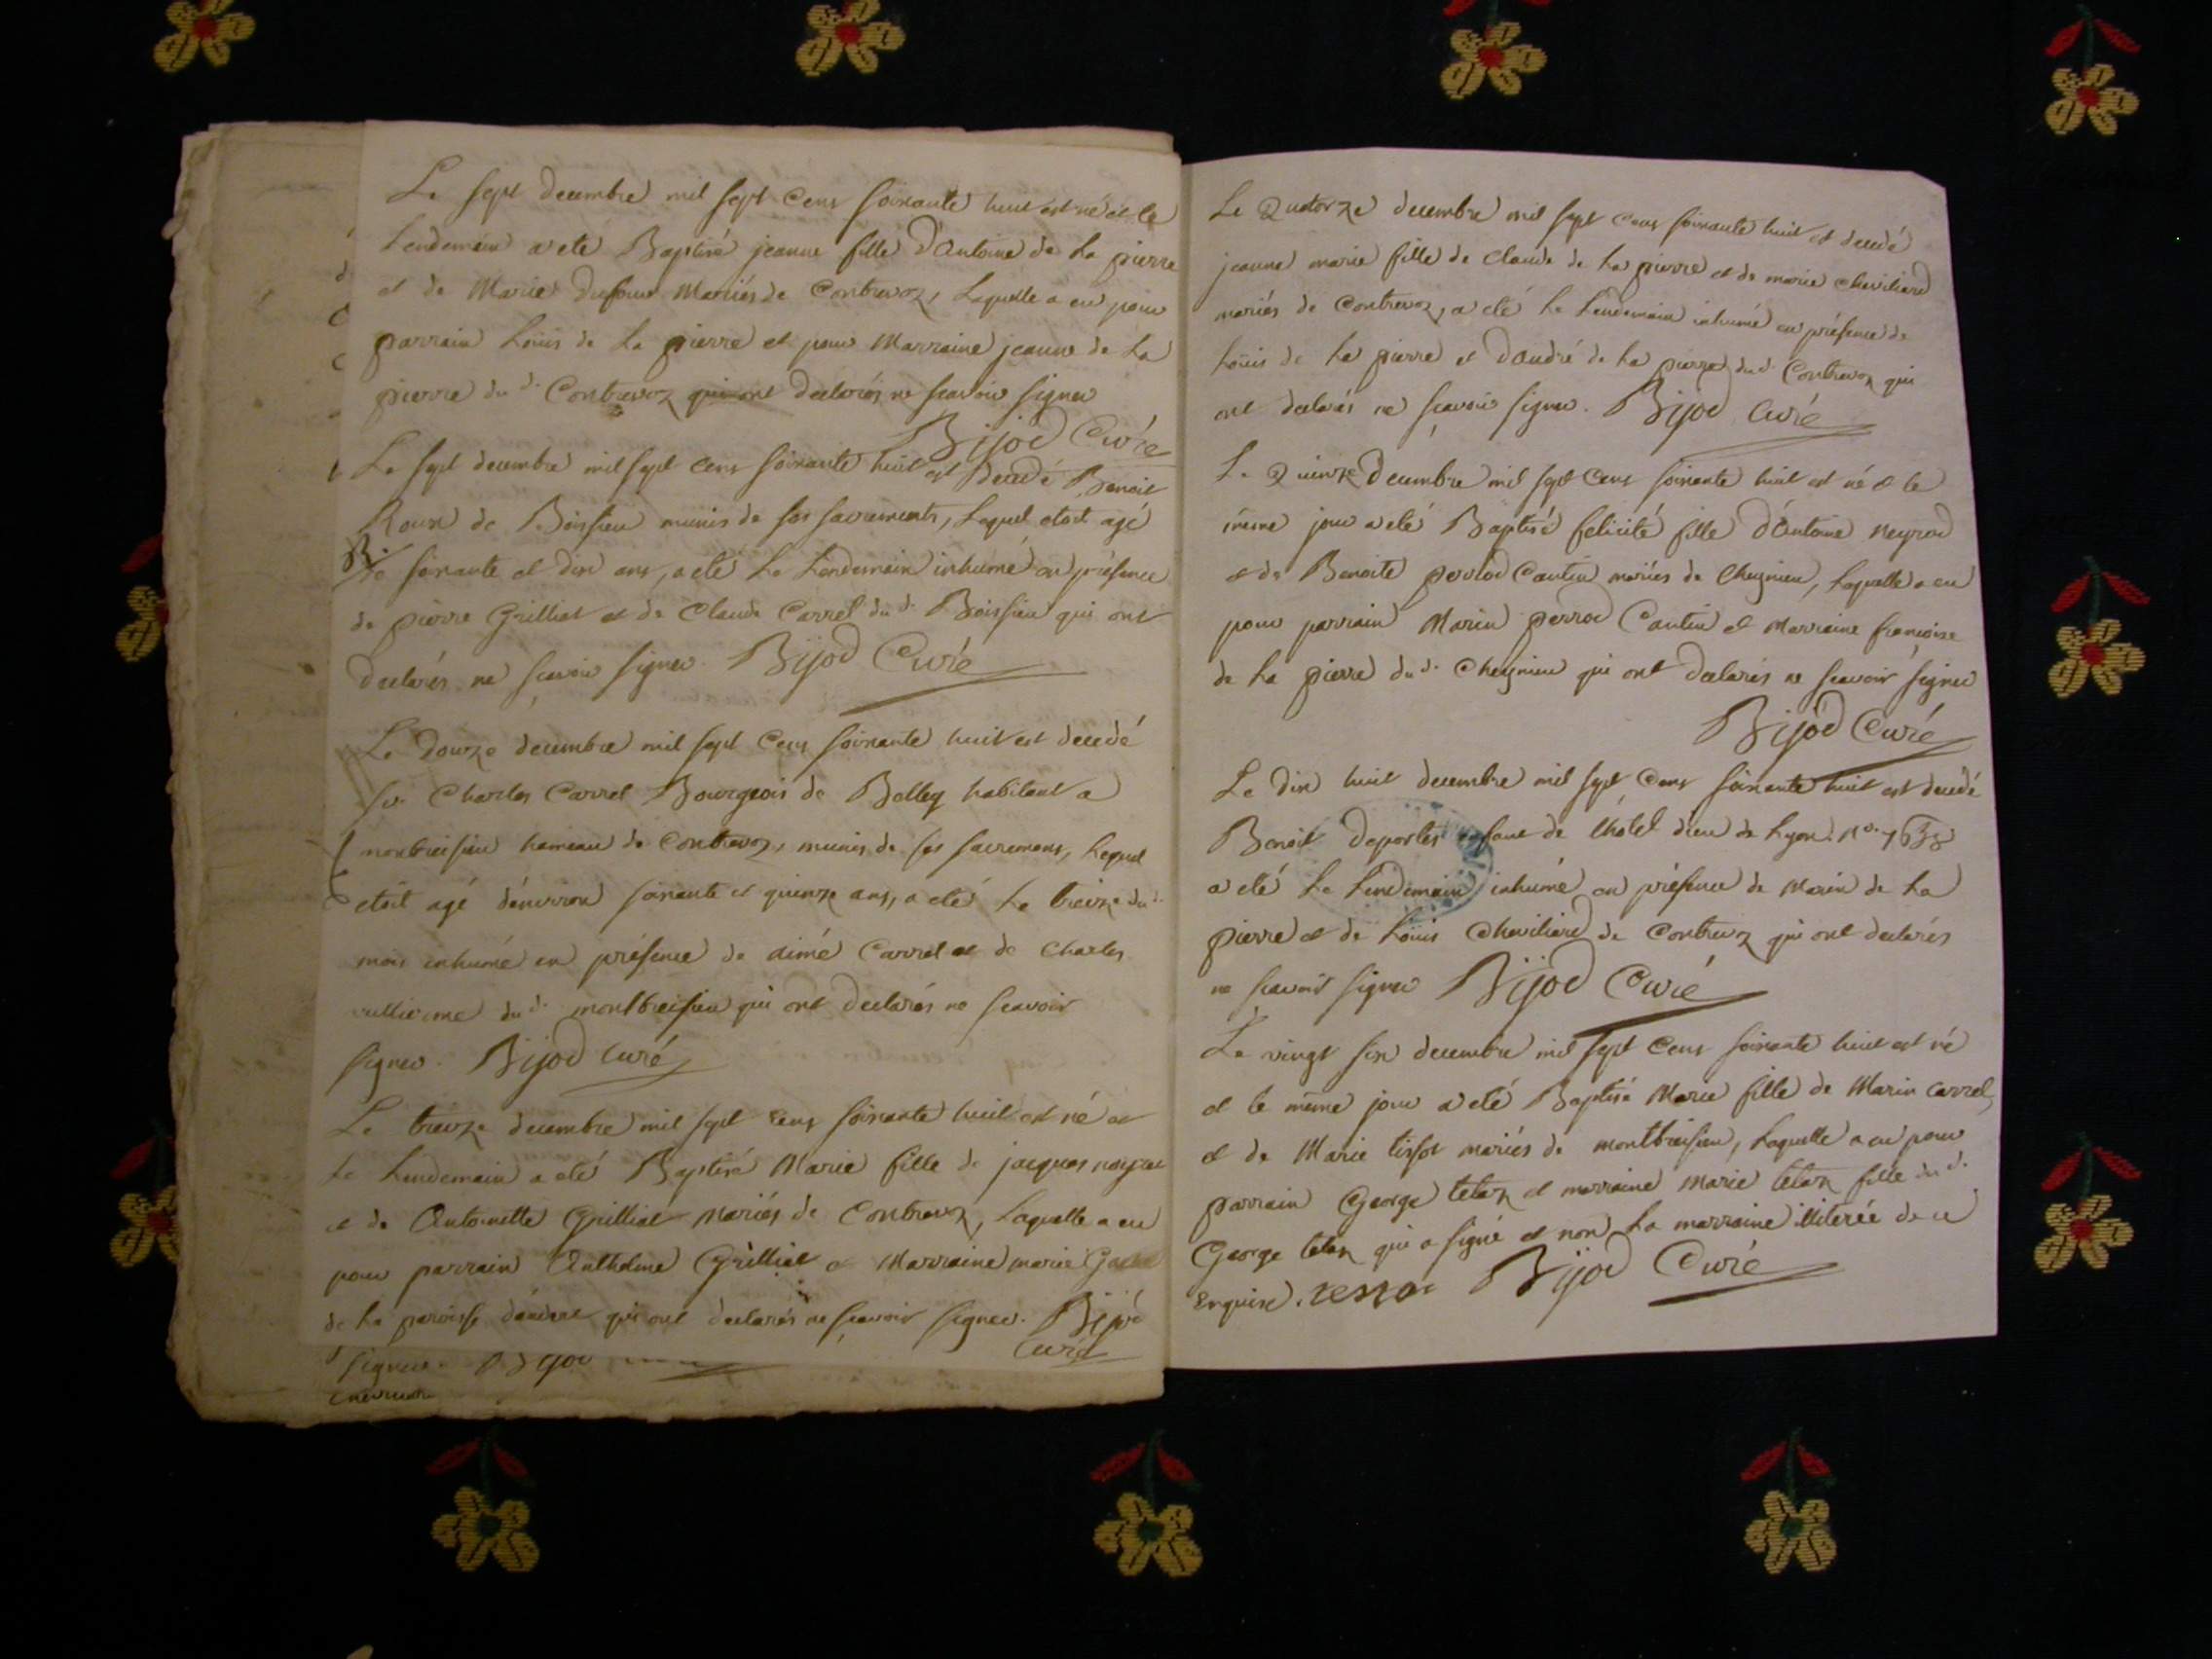 Le sept decembre mil sept cens soixante huit est né et le
Lendemain a eté Baptisé jeanne fille d'Antoine de la pierre
et de Marie Dufour Mariés de Contrevoz, Laquelle a eu pour
parrain Loüis de la pierre et pour Marraine jeanne de la
pierre du d. Contrevoz qui ont declarés ne scavoir signer
Bijod Curé
Le sept decembre mil sept cens soixante huit est decedé Benoit
Roux de Boissieu munis de ses sacrements, Lequel etoit agé
de soixante et dix ans, a eté Le Lendemain inhumé en présence
de pierre Grilliet et de Claude Carrel du d. Boissieu qui ont
declarés ne scavoir signer. Bijod Curé
Le Douze decembre mil sept cens soixante huit est decedé
sr. Charles Carrel Bourgeois de Belley habitant a
montbreisieu hameau de Contrevoz, munis de ses sacremens, Lequel
etoit agé d'environ soixante et quinze ans, a eté Le treize du d.
mois inhumé en présence de aimé Carrel et de Charles
du d. montbreisieu qui ont declarés ne scavoir
signer. Bijod Curé
Le treize decembre mil sept cens soixante huit est né et
Le Lendemain a eté Baptisé Marie fille de jacques
et de Antoinette Grilliet Mariés de Contrevoz, Laquelle a eu
pour parrain Anthelme Grilliet et Marraine marie
de La paroisse d'andert qui ont declarés ne scavoir signer. Bijod
Curé
signer. Bijod
Le Quatorze decembre mil sept cens soixante huit est decedé
jeanne marie fille de Claude de La pierre et de marie Cheviliard
mariés de Contrevoz, a eté Le Lendemain inhumé en présence de
Loüis de La pierre et d'André de La pierre du d. Contrevoz qui
ont declarés ne scavoir signer. Bijod Curé
Le Quinze decembre mil sept cens soixante huit est né et le
même jour a eté Baptisé felicité fille d'Antoine Neyrod
et de Benoite perrod Cantin mariés de Cheignieu, Laquelle a eu
pour parrain Marin perrod Cantin et Marraine françoise
de La pierre du d. Cheignieu qui ont declarés ne scavoir signer
Bijod Curé
Le dix huit decembre mil sept cens soixante huit est decedé
Benoit deportes enfant de l'hôtel dieu de Lyon. No.
a eté Le Lendemain inhumé en présence de Marin de La
pierre et de Loüis Cheviliard de Contrevoz qui ont declarés
ne scavoir signer Bijod Curé
Le vingt six decembre mil sept cens soixante huit est né
et le même jour a eté Baptisé Marie fille de Marin Carrel,
et de Marie tissot mariés de montbreisieu, Laquelle a eu pour
parrain George tetaz et marraine Marie tetaz fille du d.
George tetaz qui a signé et non La marraine illiterée de ce
Enquise. Bijod Curé